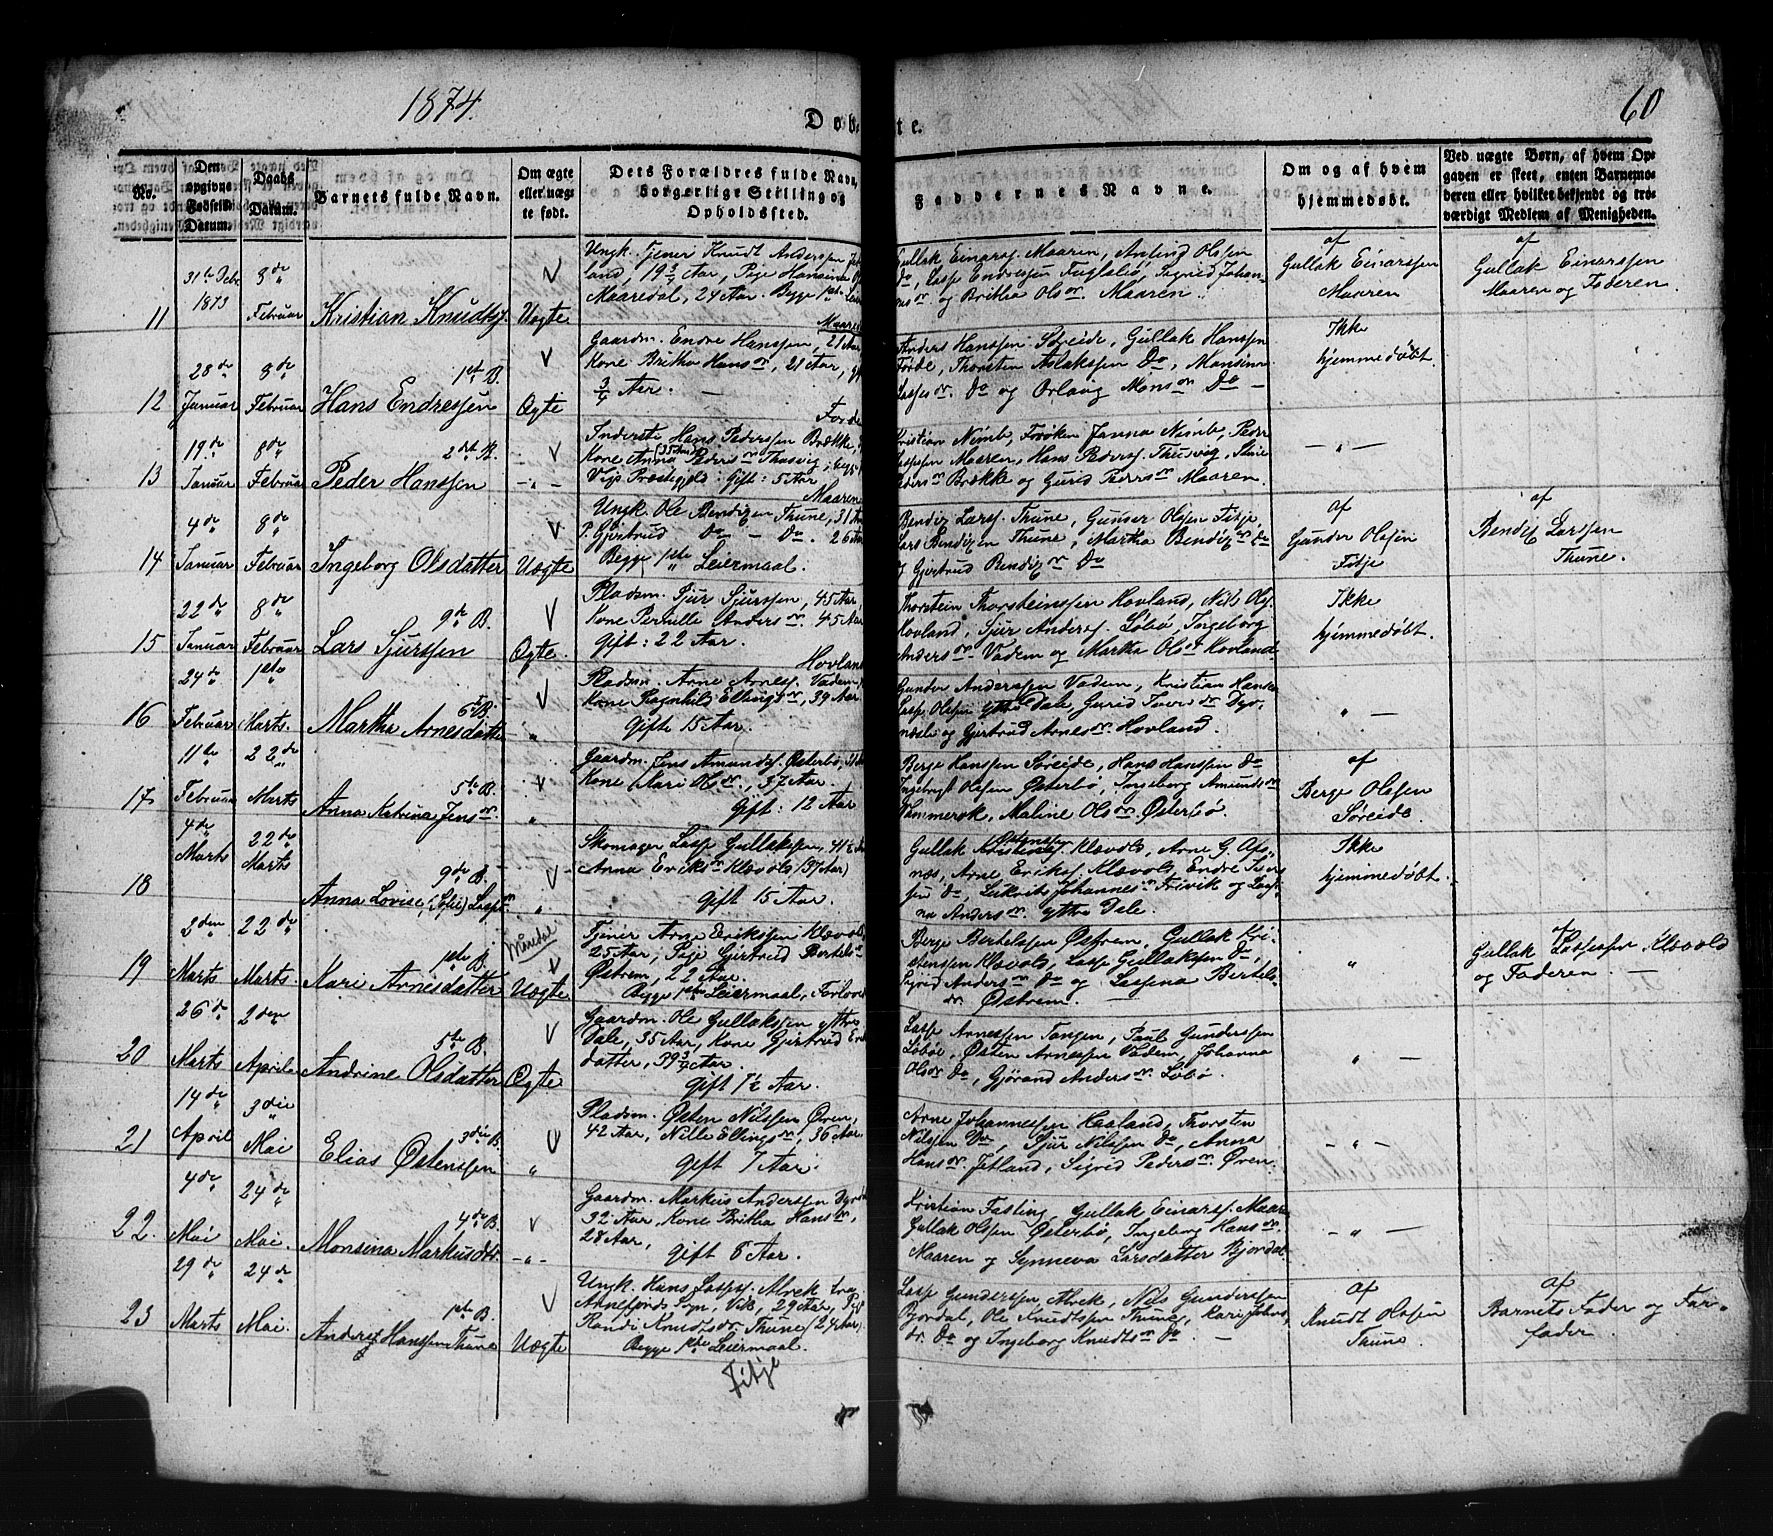 1874.
60
Døb-
te.
No.
Den opgivne Fødsels-Datum.
Daabs Datum.
Barnets fulde Navn.
Om ægte eller uægte født.
Dets Forældres fulde Navn, borgerlige Stilling og Opholdssted.
Faddernes Navne.
Om og af hvem hjemmedøbt.
Ved uægte Børn, af hvem Opgaven er skeet, enten Barnemoderen eller hvilket bekjendt og troværdigt Medlem af Menigheden.
11
31te
1873
8de Februar
Kristian Knudtss.
Uægte
Ungk. Tjener Knudt Anderssen
land, 19 3/4 Aar, Pige Hansina
Maaredal, 24 Aar. Begge 1ste
Gullak Einarss. Maaren, Olsen
Do, Lasse Endresen Fuglsbø, Sigrid Johan-
og Britha Olsdr. Maaren.
af
Gullak Einarssen
Maaren
af
Gullak Einarssen
Maaren og Faderen.
12
28de Januar
8de Februar
1ste B.
Hans Endressen
Ægte
Gaardm. Endre Hanssen, 21 Aar
Kone Britha Hansdr., 21 Aar,
3/4 Aar.
Anders Hanssen Søreide, Gullak Hanssen
Førde, Thorsten Aslakssen Do, Monsina
Lassesdr. Do og Orlaug Monsdr. Do
Ikke
hjemmedøbt.
13
19de Januar
8de Februar
2det B.
Peder Hanssen
Inderste Hans Pederssen Brække,
Kone Anna Pedersdr.
Præstegjeld. Gift: 5 Aar
Maaren
Kristian Nimb, Frøken Janna Nimb, Peder
Lassessen Maaren, Hans Pederss.
Brække og Gurid Pedersdr. Maaren.
14
4de Januar
8de Februar
Ingeborg Olsdatter
Uægte
Ungk. Ole Bendixen Thune, 31 Aar
P. Gjertrud Do - Do. 26 Aar
Begge 1ste Leiermaal.
Bendix Larss. Thune, Gunder Olssen Fitje,
Lars Bendixen Thune, Martha Bendixdr. Do
og Gjertrud Bendixdr. Do
af
Gunder Olssen
Fitje
af
Bendix Larssen
Thune.
15
22de Januar
8de Februar
9de B.
Lars Sjurssen
Ægte.
Pladsm. Sjur Sjurssen, 45 Aar,
Kone Pernille Andersdr. 45 Aar
gift: 22 Aar.
Hovland
Thorstein Thorsteinssen Hovland, Nils Ols.
Hovland, Sjur Anderss. Løbø, Ingeborg
Andersdr. Vadem og Martha Olsdr. Hovland
Ikke
hjemmedøbt.
16
24de Februar
1ste Marts.
6te B.
Martha Arnesdatter
Pladsm. Arne Arness. Vadem,
Kone Ragnhild Ellingsdr., 39 Aar
Gifte 15 Aar.
Gunder Anderssen Vadem, Kristian Hanss.
Lasse Olssen ytre Dale, Gurid Dyr-
næsli og Gjertrud Arnesdr. Hovland.
17
11te Februar
22de Marts
5te B.
Anna Katrina Jensdr.
Gaardm. Jens Amundss. Østerbø,
Kone Mari Olsdr., 37 Aar
gift: 12 Aar
Berge Hanssen Søreide, Hans Hanssen Do
Ingebrigt Olssen Østerbø, Ingeborg Amundsdr.
Hammerok, Maline Olsdr. Østerbø.
af
Berge Olssen
Søreide.
18
4de Marts
22de Marts
9de B.
Anna Lovise, (Sofie) Lassesdr.
Skomager Lasse Gullakssen, 41
Anna Eriksdr. Klævold (37 Aar)
gift 15 Aar.
Gullak Østenss. Klævold, Arne G. Ops-
næs, Arne Erikss. Klævold, Endre
Do, Johannesdr. Frivik og
Andersdr. ytre Dale.
Ikke
hjemmedøbt.
19
2den Marts
22de Marts.
1ste B.
Kari Arnesdatter
Uægte
Tjener Arne Erikssen Klævold
25 Aar, Pige Gjertrud Bertelsdr.
Østrem, 22 Aar.
Begge 1ste Leiermaal, Forlov
Berge Bertelssen Østrem, Gullak Kri-
stenssen Klævold, Lasse Gullakssen Do,
Sigrid Andersdr. Do og Lassena Bertels-
dr. Østrem.
af
Gullak Lassessen Klævold
og Faderen.
20
26de Marts
2den April
5te B.
Andrine Olsdatter
Ægte
Gaardm. Ole Gullakssen ytre
Dale, 35 Aar, Kone Gjertrud
datter, 39 3/4 Aar.
gift 7 1/2 Aar.
Lasse Arnessen Tangen, Paul Gunderssen
Løbøe, Østen Arnessen Vadem, Johanna
Olsdr. Do, Gjørand Andersdr. Løbø.
21
14de April
3die Mai
3die B.
Elias Østenssen
Pladsm. Østen Nilssen Øren,
42 Aar, Nille Ellingsdr., 36 Aar
gift 7 Aar.
Arne Johannessen Haaland, Thorsten
Nilssen Do, Sjur Nilssen Do, Anna
Hansdr. Jetland, Sigrid Pedersdr. Øren.
22.
4de Mai
24de Mai.
4de B.
Monsina Markusdtr.
Gaardm. Markus Anderssen
32 Aar, Kone Britha Hansdr.,
28 Aar,
gift 6 Aar.
Kristian Fasting, Gullak Einarss. Maar
Gullak Olssen Østerbø, Ingeborg Hansdr.
Maaren og Synneva Larsdatter Bjordal
23
29de Marts
24de Mai.
1ste B.
Andreas Hanssen Thune
Uægte
Ungk. Hans Lasses. Alrek fra
Arnefjords Sogn, Vik, 29 Aar, Pige
Randi Knudtsdr. Thune (24 Aar)
Begge 1ste Leiermaal.
Fitje
Lasse Gunderssen Alrek, Nils Gunderssen
Bjordal, Ole Knudtssen Thune, Kari
dr. Do og Ingeborg Knudtsdr. Do
af
Knudt Olssen
Thune
af
Barnets Fader og Far-
fader.